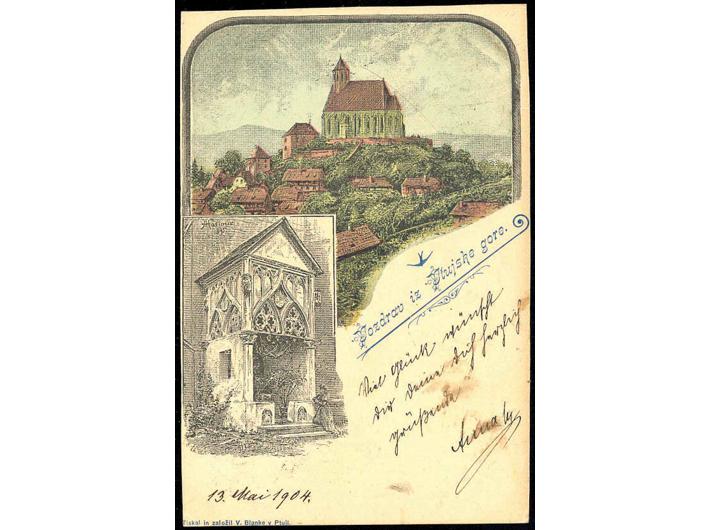 Pozdrav iz Ptujske gore.
Viel Glück wünscht
dir deine dich herzlich
grüßende
Anna
13. Mai 1904.
Tiskal in založil V. Blanke v Ptuji.